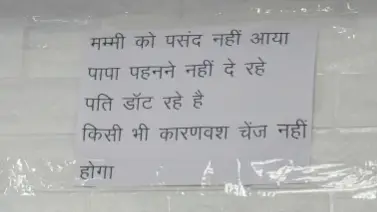 मम्मी को पसंद नहीं आया
पापा पहनने नहीं दे रहे
पति डॉट रहे है
किसी भी कारणवश चेंज नहीं
होगा